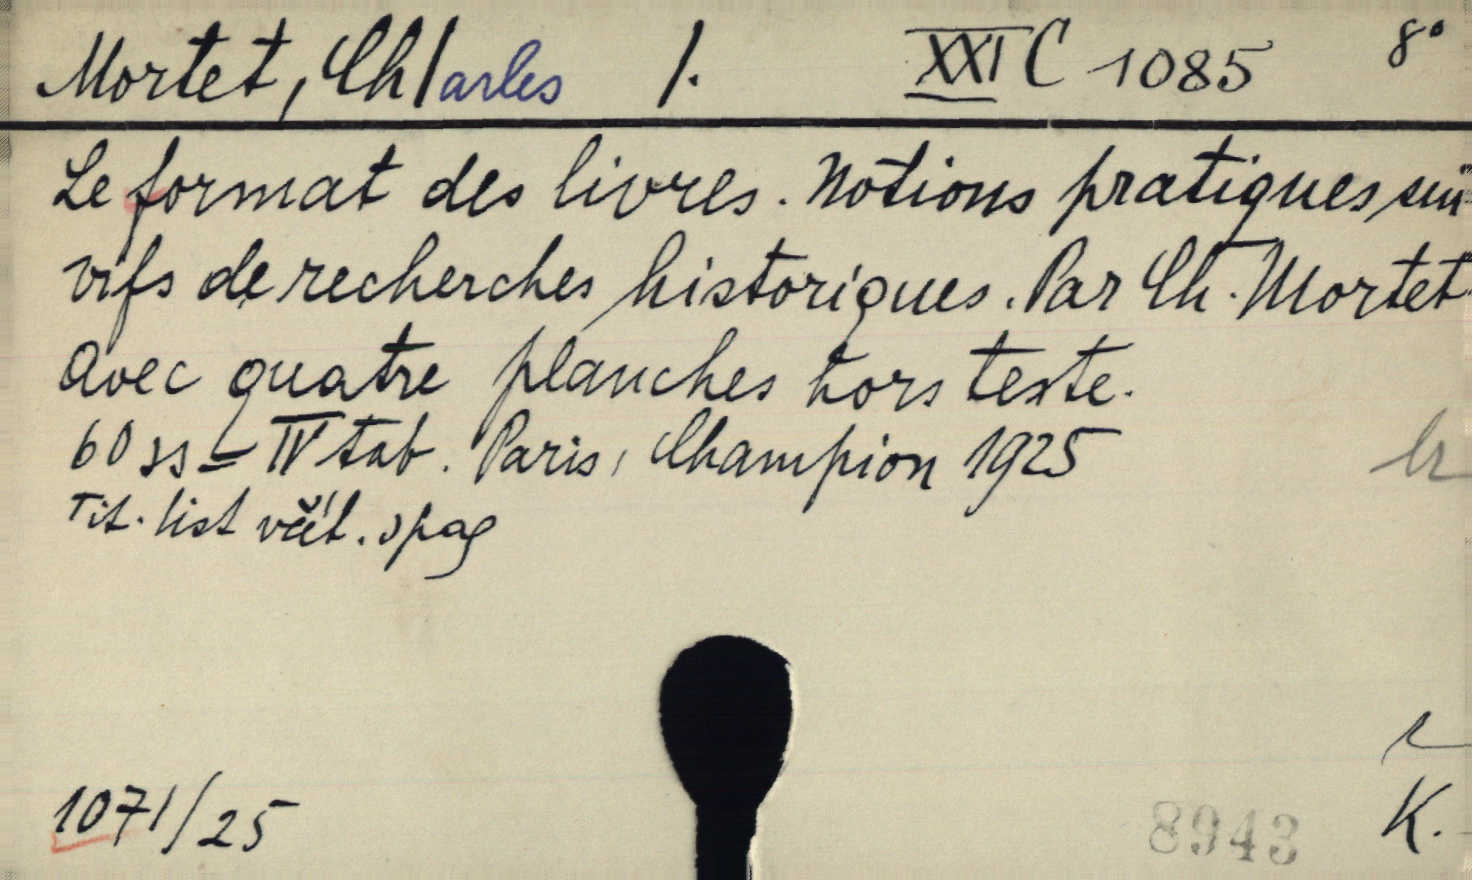 Mortet, Ch/arles /. XXI C 1085 8°
Le format des livres. Notions pratiques sui-
vifs de recherches historiques. Par Ch. Mortet.
Avec quatre planches hors texte.
60 ss = IV tab. Paris, Champion 1925
Tit. list včít. spag
1071/25
8943
K.